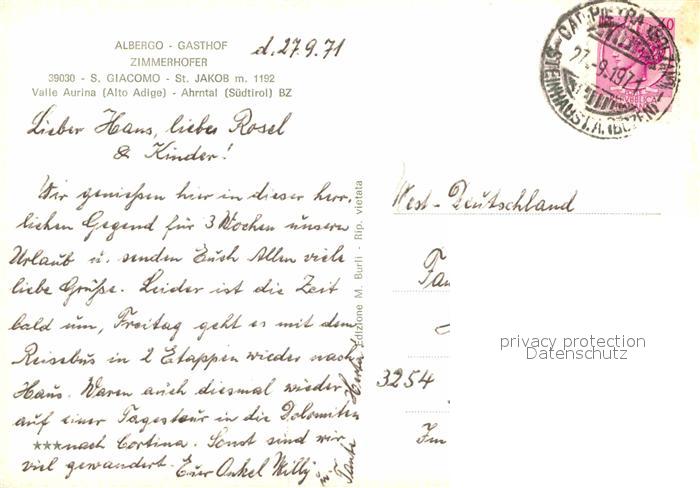 ALBERGO - GASTHOF
ZIMMERHOFER
39030 - S. GIACOMO - St. JAKOB m. 1192
Valle Aurina (Alto Adige) - Ahrntal (Südtirol) BZ
d. 27.9.71
Lieber Hans, liebes Rosel
& Kinder!
Wir genießen hier in dieser herr-
lichen Gegend für 3 Wochen unseren
Urlaub u. senden Euch Allen viele
liebe Grüße. Leider ist die Zeit
bald um, Freitag geht es mit dem
Reisebus in 2 Etappen wieder nach
Haus. Waren auch diesmal wieder
auf einer Tagestour in die Dolomiten
***nach Cortina. Sonst sind wir
viel gewandert. Euer Onkel Willy
u. Tante Herta
Edizione M. Burli - Rip. vietata
CADIPIETRA (BOLZANO)
27.-9.1971
STEINHAUS I.A. (BOZEN)
West-Deutschland
Fa
3254
Im
privacy protection
Datenschutz